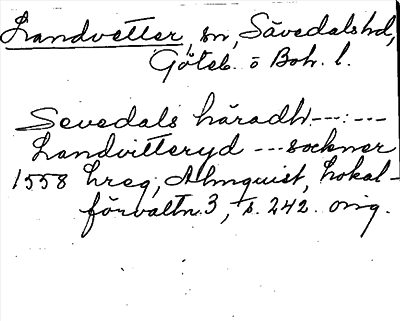 Landvetter, sn, Sävedals hd,
Göteb. o Boh. l.
Sevedals häradh --- : ---
Landvitteryd --- sockner
1558 hreg, Almquist, Lokal-
förvaltn. 3, s. 242. orig.